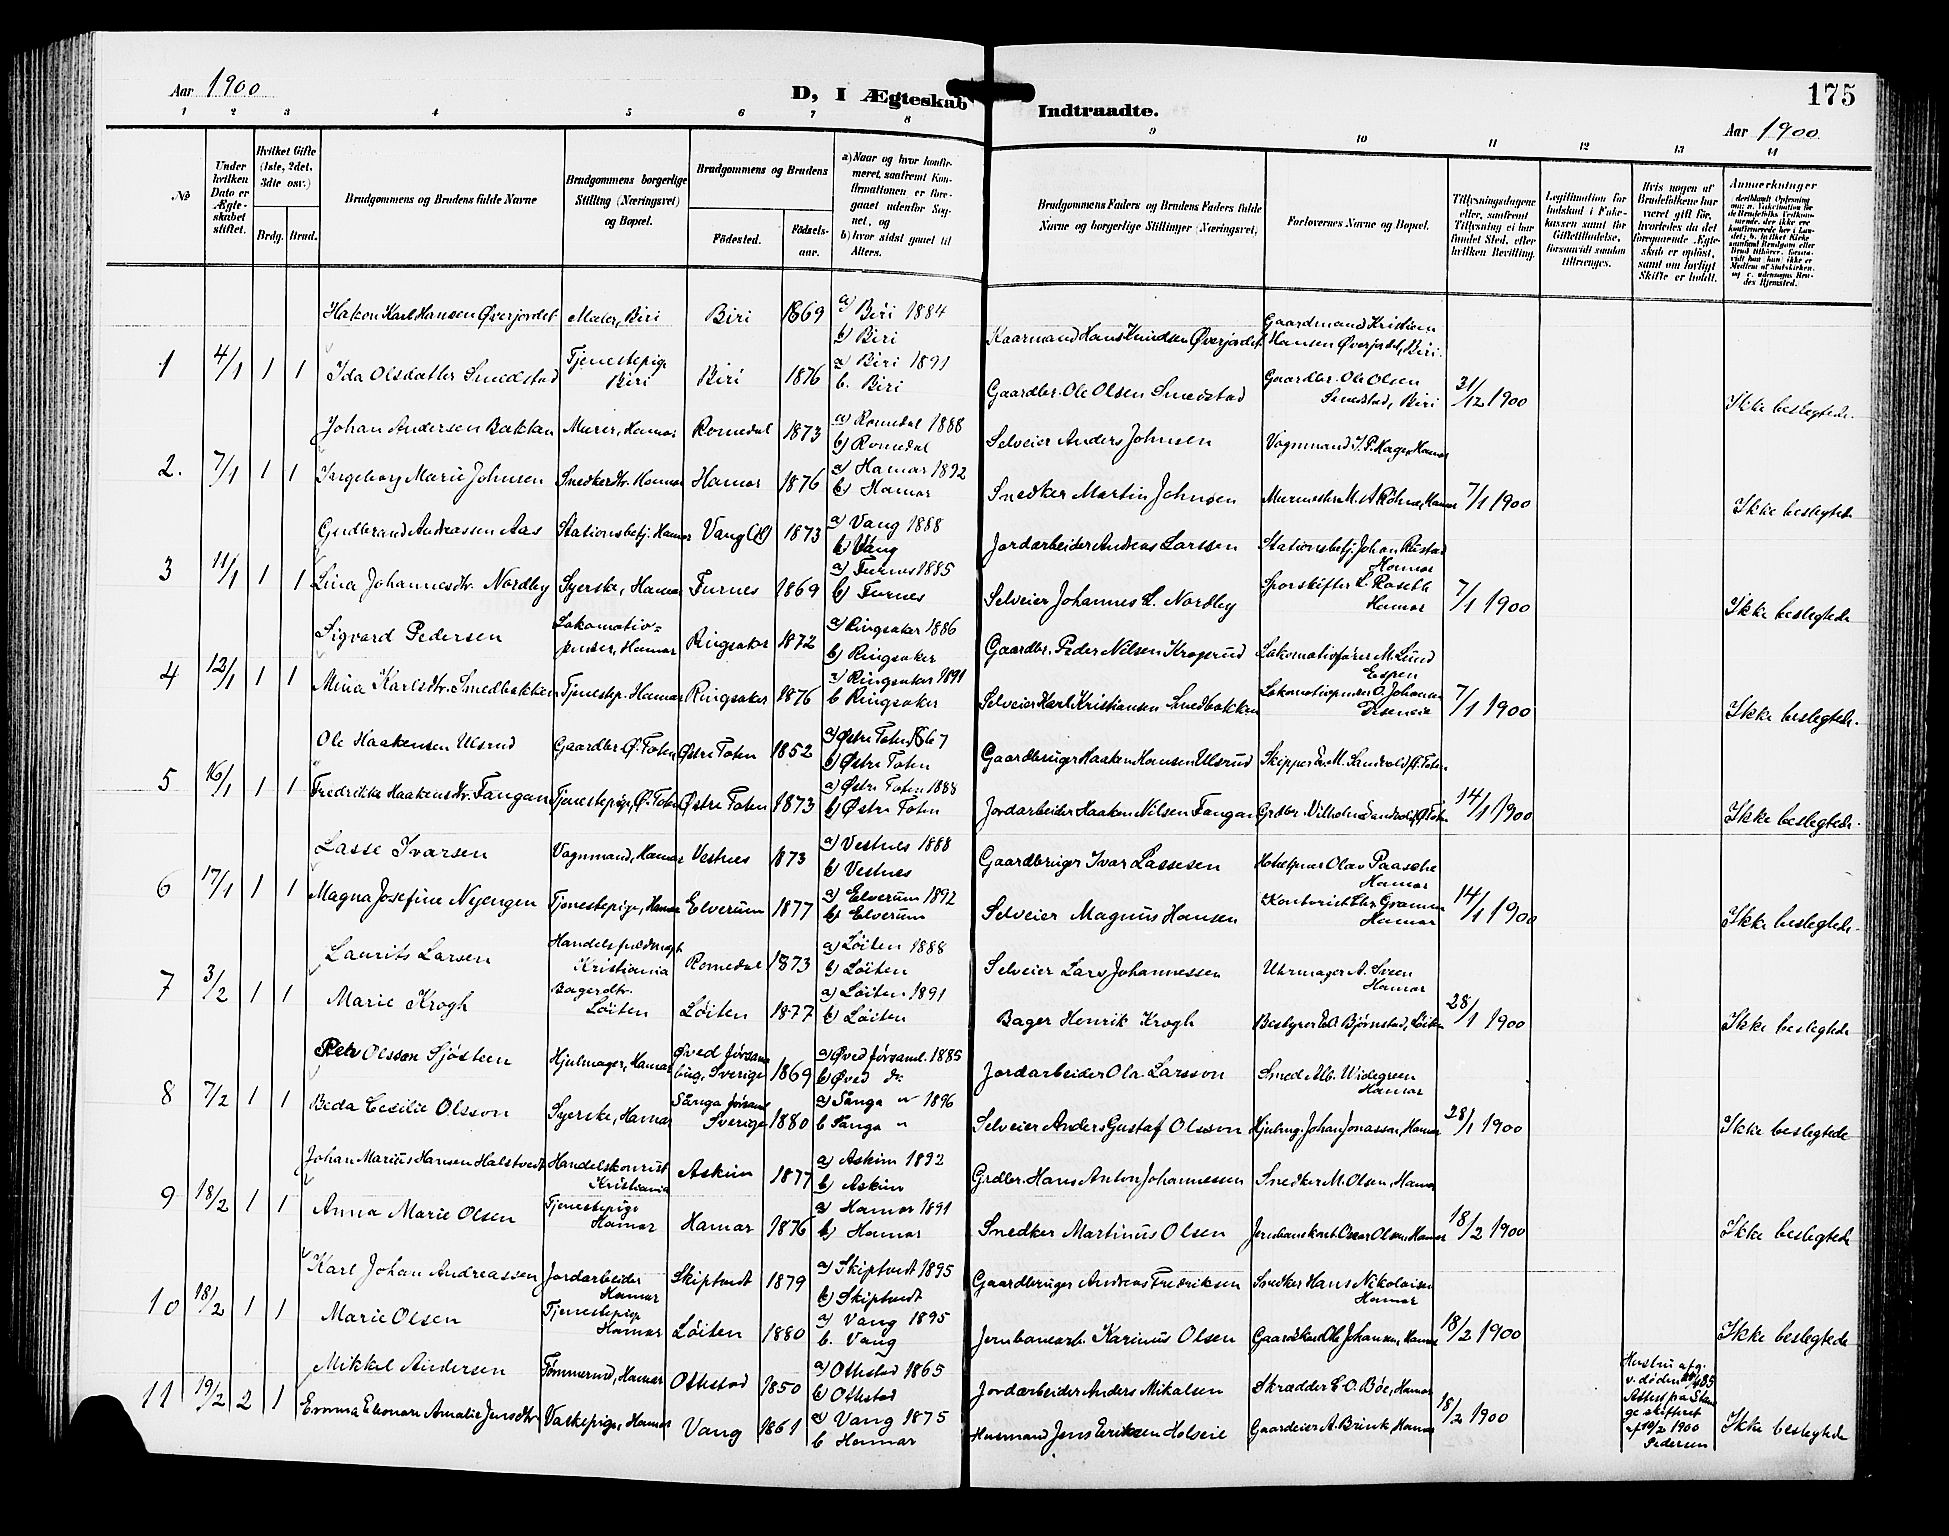 Aar 1900
D, I Ægteskab
Indtraadte.
175
Aar 1900
1 2 3 4 5 6 7 8 9 10 11 12 13 14
No
Under hvilken Dato er Ægteskabet stiftet.
Hvilket Gifte (1ste, 2det, 3die osv.)
Brdg. Brud.
Brudgommens og Brudens fulde Navne
Brudgommens borgerlige Stilling (Næringsvei) og Bopæl.
Brudgommens og Brudens
Fødested.
Fødselsaar.
a) Naar og hvor konfirmeret, samt om Konfirmationen er foregaaet udenfor Sognet, og
b) hvor sidst gaaet til Alters.
Brudgommens Faders og Brudens Faders fulde Navne og borgerlige Stillinger (Næringsvei)
Forlovernes Navne og Bopæl.
Tillysningsdagene eller, saafremt Tillysning ei har fundet Sted, efter hvilken Bevilling.
Legitimation for Indskud i Enkekassen samt for Giftetilladelse, forsaavidt saadan tiltrænges.
Hvis nogen af Brudefolkene har været gift før, hvorledes da det foregaaende Ægteskab er opløst, samt om lovligt Skifte er holdt.
Anmærkninger
1 4/1 1 1 Hakon Karl Hansen Øverjordet Maler, Biri Biri 1869 a) Biri 1884 b) Biri Kaarmand Hans Knudsen Øverjordet Gaardmand Kristian Hansen Øverjordet, Biri.
Ida Olsdatter Smedstad Tjenestepige Biri Biri 1876 a) Biri 1891 b. Biri Gaardbr. Ole Olsen Smedstad Gaardbr. Ole Olsen Smedstad, Biri 31/12 1900 Ikke beslegtede.
2. 7/1 1 1 Johan Andersen Bakken Murer, Hamar Romedal 1873 a) Romedal 1888 b) Romedal Selveier Anders Johnsen Vognmand J. P. Hage, Hamar
Ingeborg Marie Johnsen Snedkerdtr. Hamar Hamar 1876 a) Hamar 1892 b) Hamar Snedker Martin Johnsen Murmester M. A. Röhne, Hamar 7/1 1900 Ikke beslegtede
3 11/1 1 1 Gudbrand Andreassen Aas Stationsbetj. Hamar Vang (H) 1873 a) Vang 1888 b) Vang Jordarbeider Andreas Larssen Stationsbetj. Johan Rustad Hamar
Lina Johannesdtr. Nordby Syerske, Hamar Furnes 1869 a) Furnes 1885 b) Furnes Selveier Johannes L. Nordby Sporskifter L. Roseth Hamar 7/1 1900 Ikke beslegtede
4 12/1 1 1 Sigvard Pedersen Lokomotivpudser, Hamar Ringsaker 1872 a) Ringsaker 1886 b) Ringsaker Gaardbr. Peder Nilsen Krogsrud Lokomotivfører M. Lund Espen
Mina Karlsdtr. Smedbakken Tjenestep. Hamar Ringsaker 1876 a) Ringsaker 1891 b Ringsaker Selveier Karl Kristiansen Smedbakken Lokomotivpudser O. Johansen Diseneie 7/1 1900 Ikke beslegtede.
5 16/1 1 1 Ole Haakensen Ulsrud Gaardbr. Ø. Toten Østre Toten 1852 a) Østre Toten 1867 b) Østre Toten Gaardbruger Haaken Hansen Ulsrud Skipper M. Sandvold, Ø. Toten
Fredrikke Haakensdtr. Fangan Tjenestepige, Ø. Toten Østre Toten 1873 a) Østre Toten 1888 b) Østre Toten Jordarbeider Haaken Nilsen Fangan Grdbr. Vilhelm Sandvold, Ø. Toten 14/1 1900 Ikke beslegtede.
6 17/1 1 1 Lasse Ivarsen Vognmand, Hamar Vestnes 1873 a) Vestnes 1888 b) Vestnes Gaardbruger Ivar Lassesen Olav Paasche Hamar
Magna Josefine Nyengen Tjenestepige, Hamar Elverum 1877 a) Elverum 1892 b) Elverum Selveier Magnus Hansen Kontorist Chr. Gramm Hamar 14/1 1900 Ikke beslegtede.
7 3/2 1 1 Laurits Larsen Handelsfuldmægt. Kristiania Romedal 1873 a) Løiten 1888 b) Løiten Selveier Lars Johannessen Uhrmager A. Sveen Hamar
Marie Krogh Bagerdtr. Løiten Løiten 1877 a) Løiten 1891 b) Løiten Bager Henrik Krogh Bestyrer Ed. Bjørnstad, Løiten 28/1 1900 Ikke beslegtede
8 7/2 1 1 Pehr Olsson Sjösteen Hjulmager, Hamar Øved församling, Sverige 1869 a) Øved församl. 1885 b) Øved do. Jordarbeider Ola Larsson Smed Alb. Widegreen Hamar
Beda Cecilie Olsson Syerske, Hamar Sånga församl. Sverige 1880 a) Sånga " 1896 b Sånga " Selveier Anders Gustaf Olsson Hjulmag. Johan Jonasson, Hamar 28/1 1900 Ikke beslegtede
9 18/2 1 1 Johan Marius Hansen Halstvedt Handelskontorist Kristiania Askim 1877 a) Askim 1892 b) Askim Grdbr. Hans Anton Johannessen Snedker M. Olsen, Hamar
Anna Marie Olsen Tjenestepige Hamar Hamar 1876 a) Hamar 1891 b) Hamar Snedker Martinus Olsen Jernbanekont. Oscar Olsen, Hamar 18/2 1900 Ikke beslegtede
10 18/2 1 1 Karl Johan Andreassen Jordarbeider Hamar Skiptvedt 1879 a) Skiptvedt 1895 b) Skiptvedt Gaardbruger Andreas Fredriksen Snedker Hans Nikolaisen Hamar
Marie Olsen Tjenestepige Hamar Løiten 1880 a) Vang 1895 b. Vang Jernbanearb. Karinus Olsen Ole Johansen, Hamar 18/2 1900 Ikke beslegtede
11 19/2 2 1 Mikkel Andersen Tømmermd, Hamar Ottestad 1850 a) Ottestad 1865 b) Ottestad Jordarbeider Anders Mikalsen Skrædder C. O. Bøe, Hamar
Emma Eleonore Amalie Jensdtr. Vaskepige, Hamar Vang 1861 a) Vang 1875 b Hamar Husmand Jens Eriksen Holseie Gaardeier A. Brink, Hamar 18/2 1900 Hustru afg. v. døden Attest fra Stange skifteret af 19/2 1900 Pedersen Ikke beslegtede